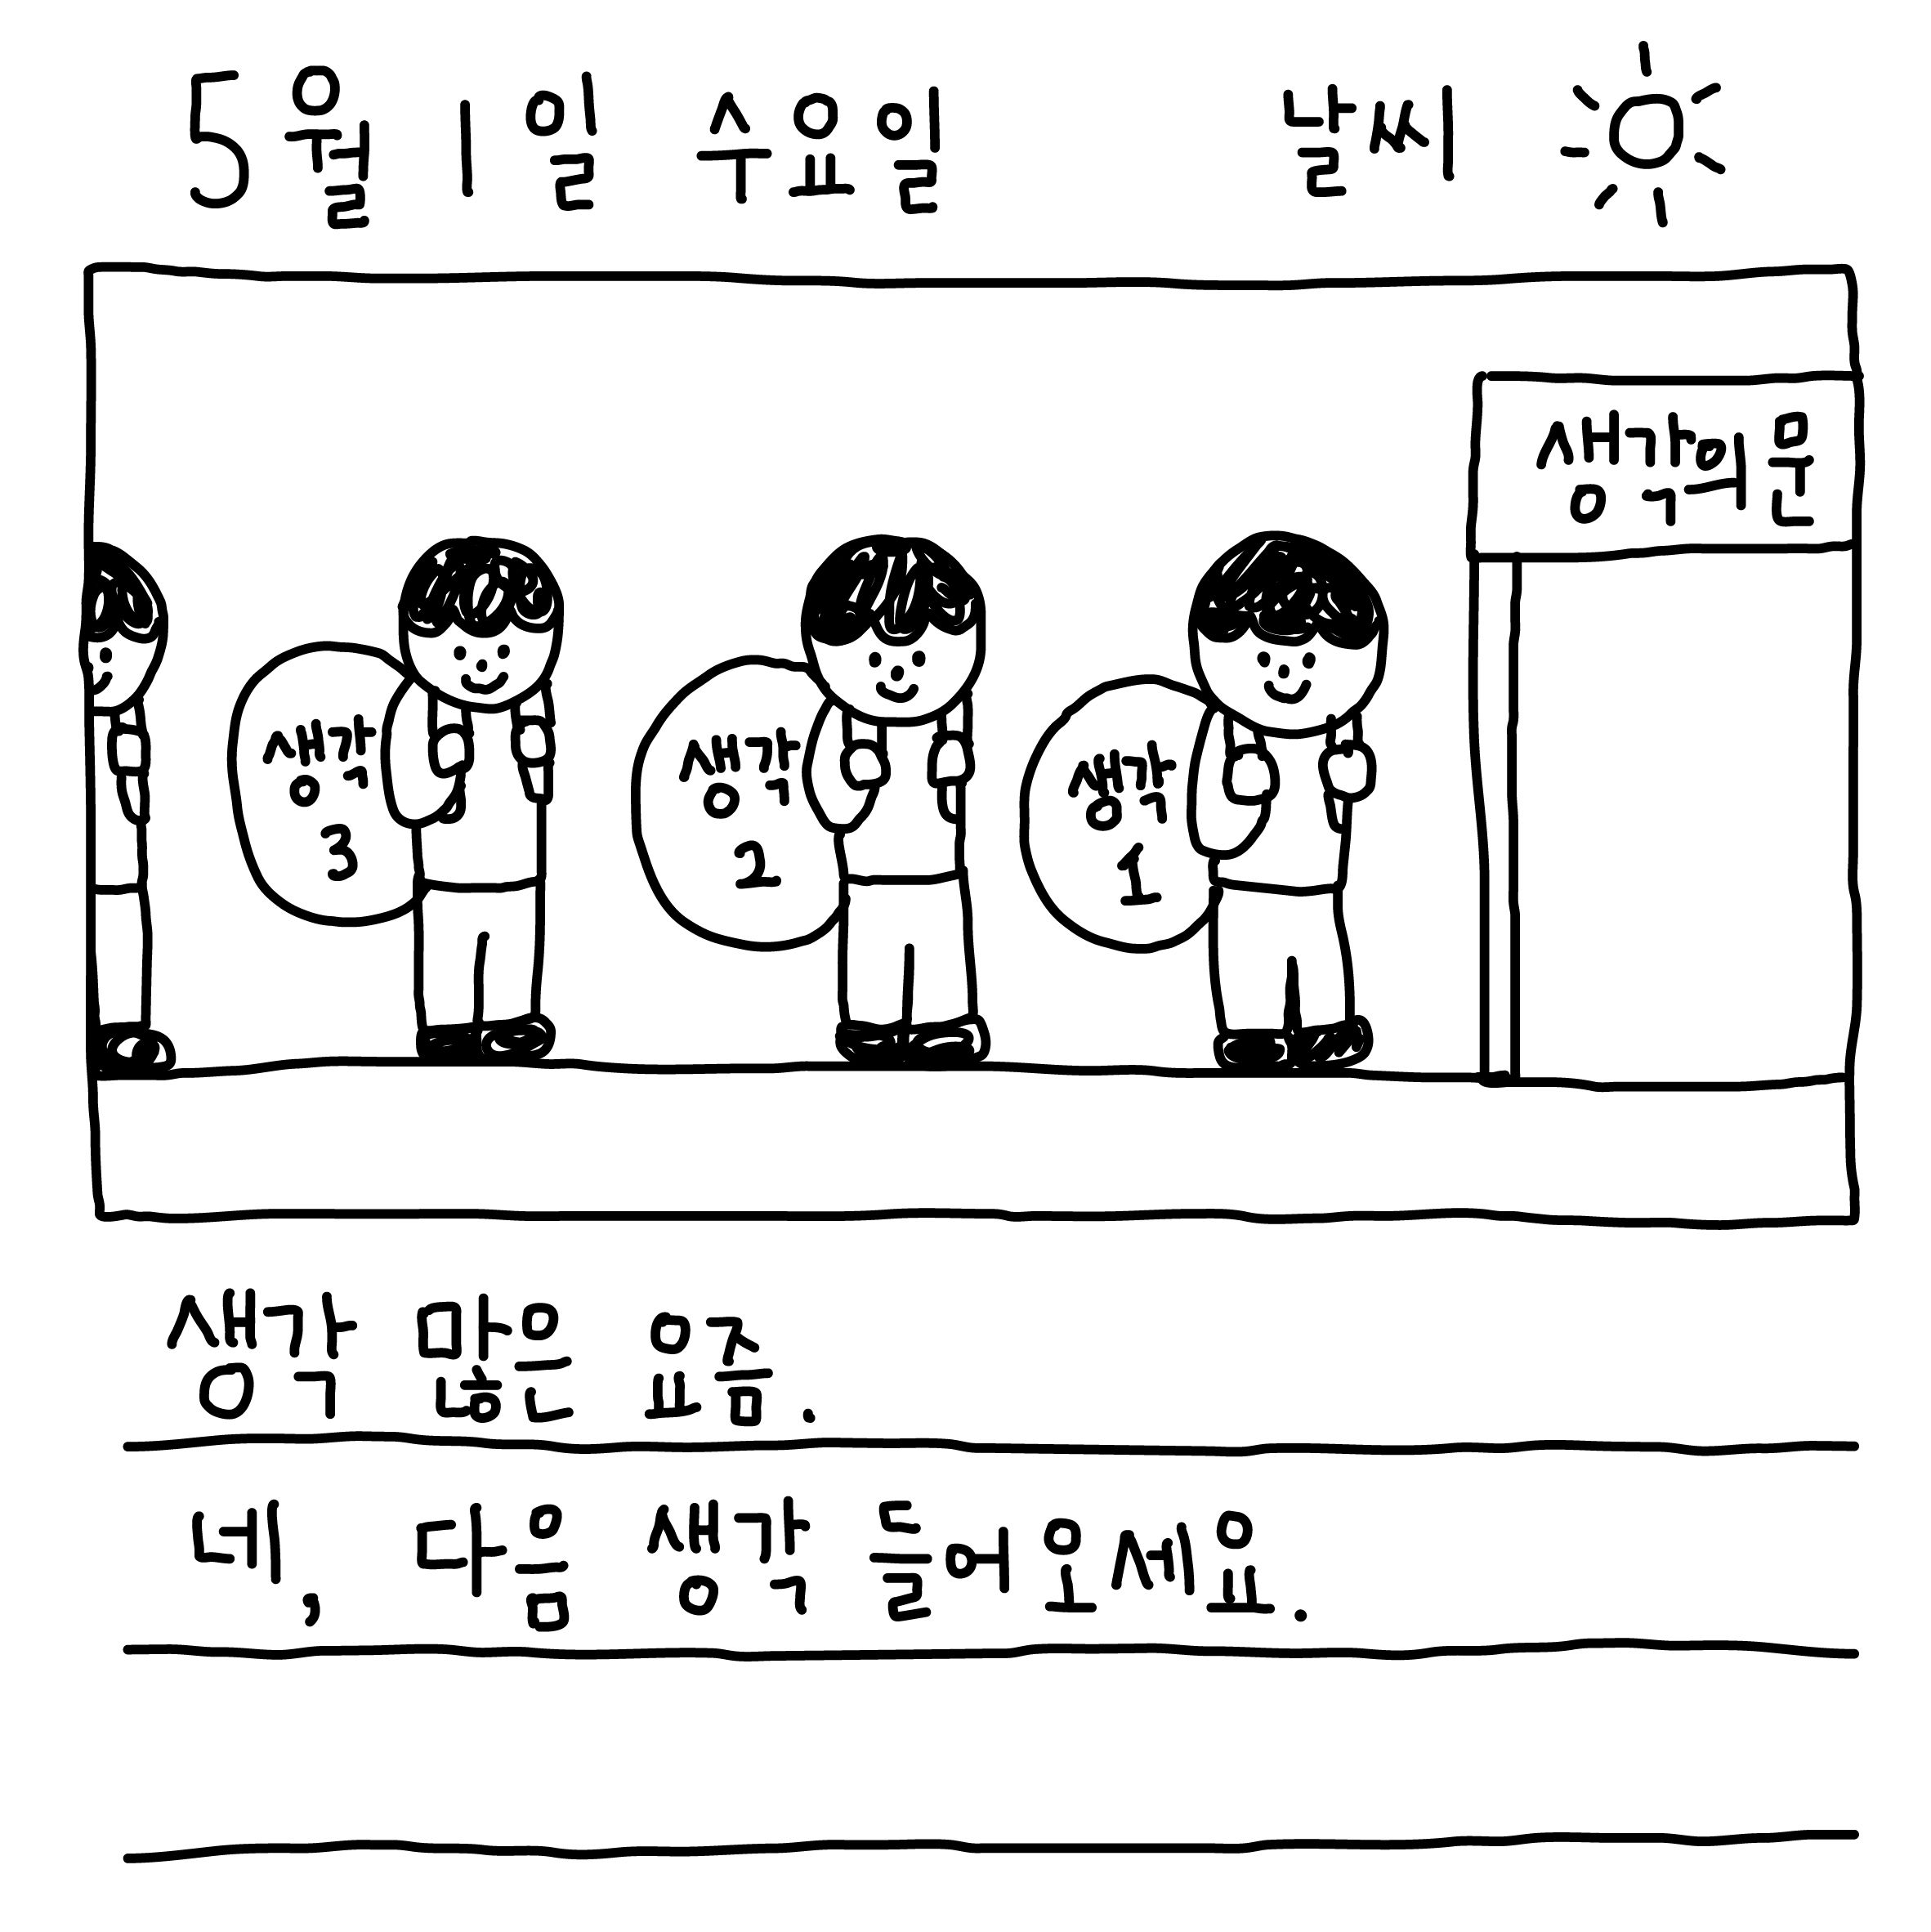 5월 1일 수요일 날씨
생각의 문
생각 3
생각 2
생각 1
생각 많은 요즘.
네, 다음 생각 들어오세요.